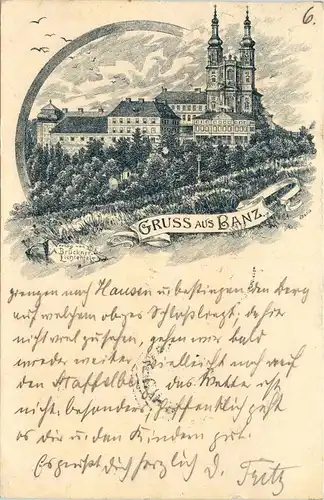 6.
GRUSS AUS BANZ.
A. Brückner
Lichtenfels
giengen nach Hausen u. bestiegen den Berg
auf welchem obiges Schloß liegt, da hier
nicht viel zu sehen, gehen wir bald
wieder weiter, vielleicht noch auf
den Staffelberg, das Wetter ist
nicht besonders, hoffentlich geht
es dir u. den Kindern gut.
Es grüßt dich herzlich d. Fritz